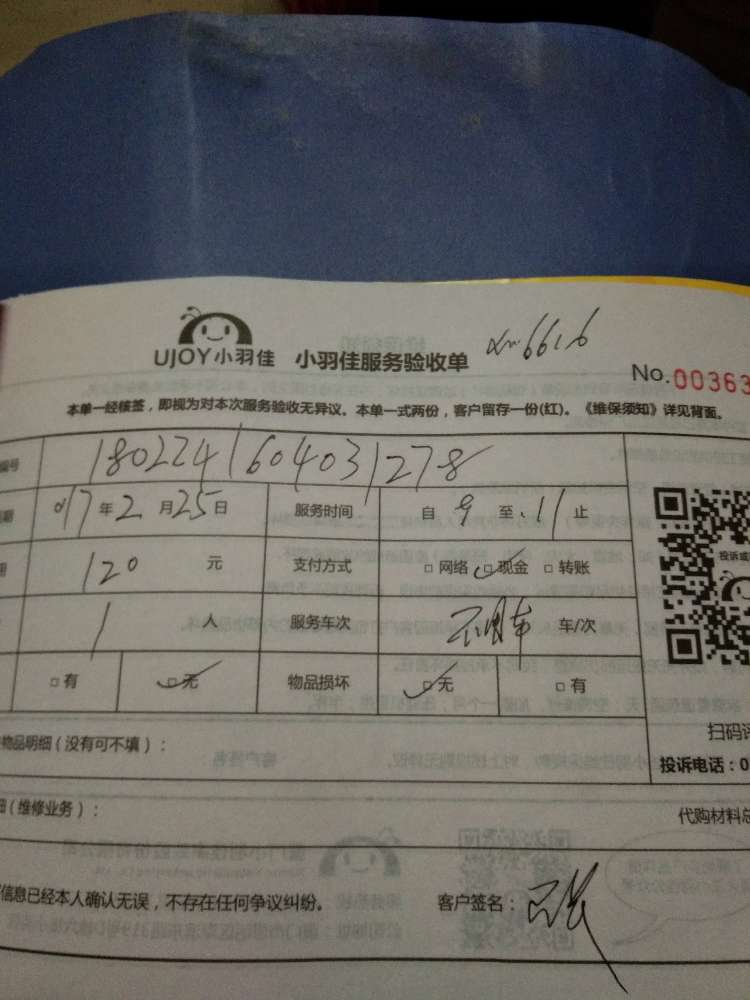 UJOY小羽佳 小羽佳服务验收单 6616
No.00363
本单一经核签,即视为对本次服务验收无异议。本单一式两份,客户留存一份(红)。《维保须知》详见背面。
编号 1802241604031278
期 017年2月25日 服务时间 自9至:11止
120元 支付方式 □网络 ☑现金 □转账
1人 服务车次 不用车 车/次
□有 ☑无 物品损坏 ☑无 □有
投诉或
扫码评
物品明细(没有可不填):
投诉电话:0
细(维修业务):
代购材料总
信息已经本人确认无误,不存在任何争议纠纷。 客户签名: